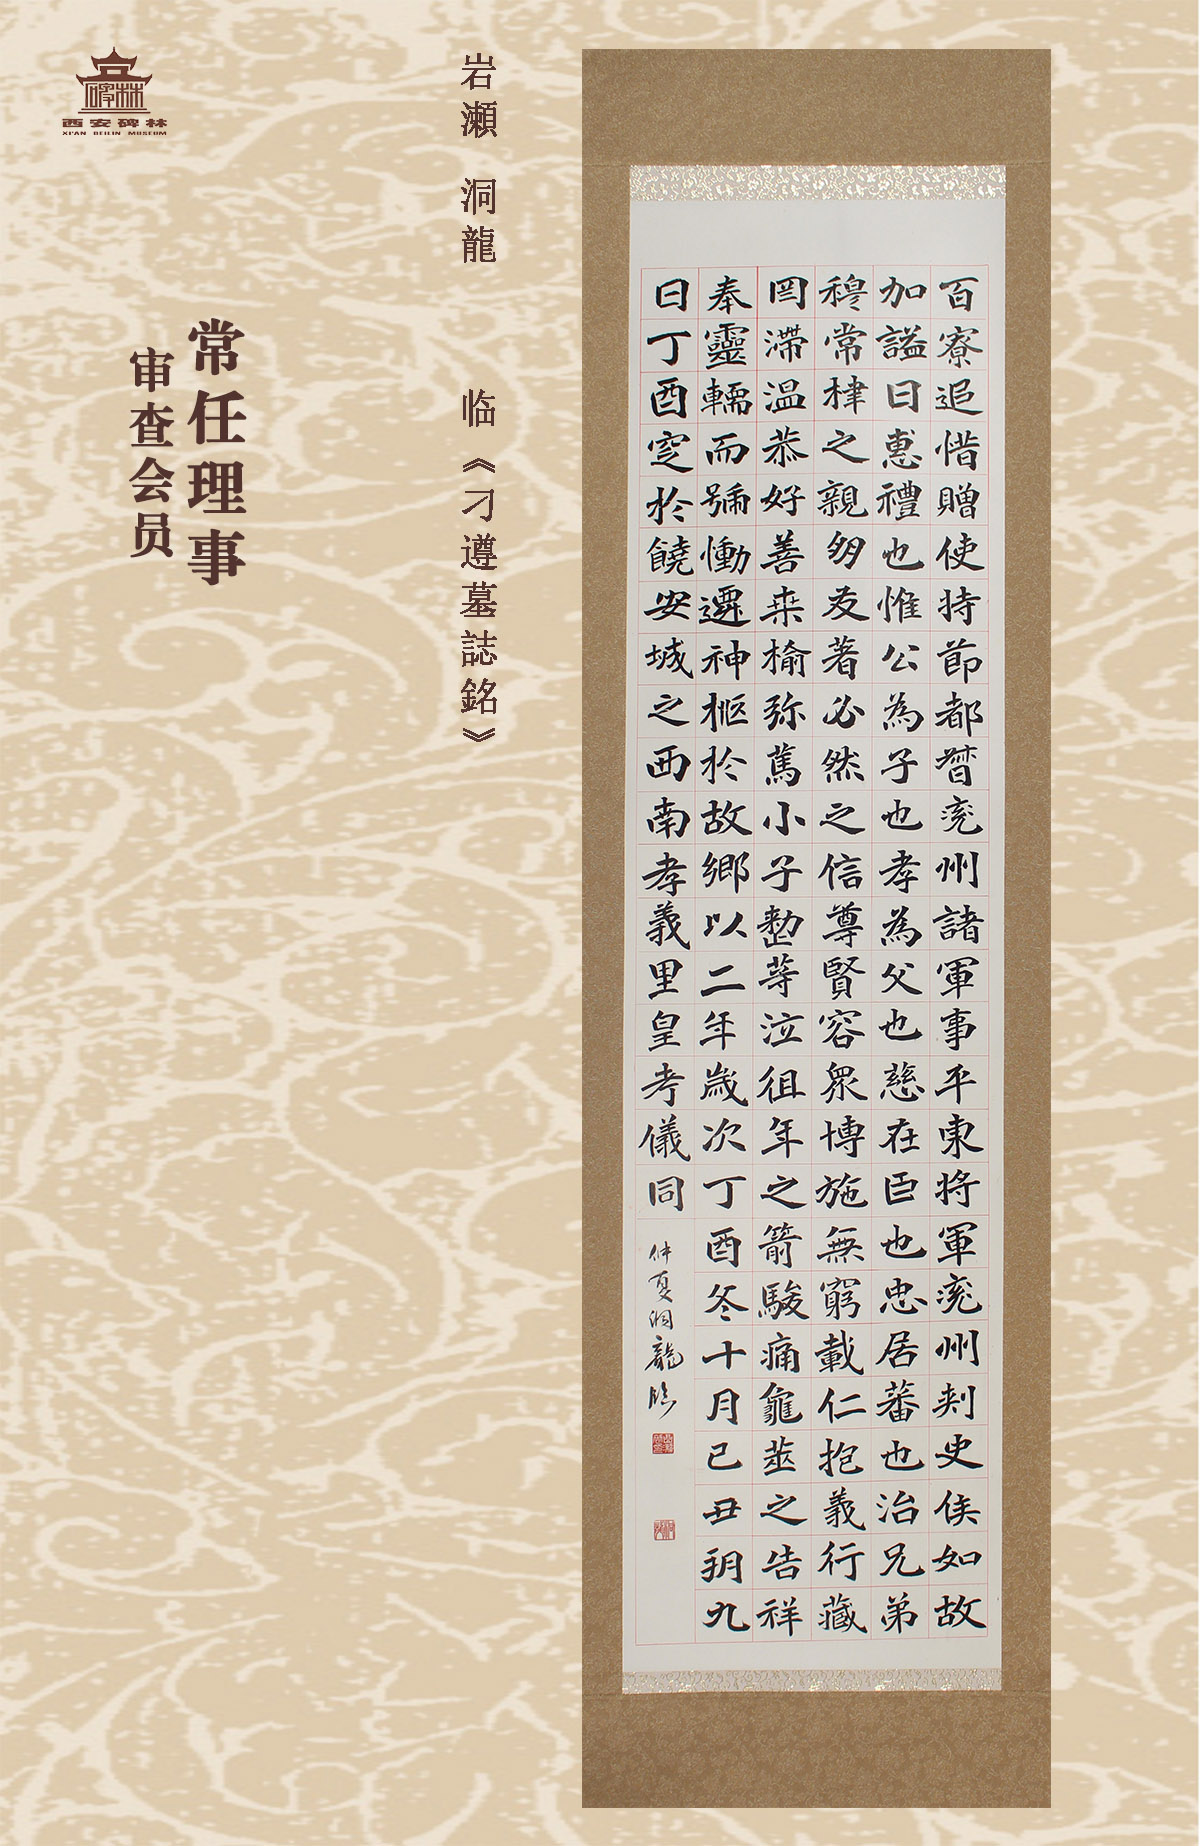 西安碑林
XI'AN BEILIN MUSEUM
岩瀬 洞龍 临《刁遵墓誌銘》
常任理事
审查会员
百寮追惜贈使持節都督兖州諸軍事平東将軍兖州刺史侯如故
加謚曰惠禮也惟公為子也孝為父也慈在臣也忠居蕃也治兄弟
穆常棣之親朋友著必然之信尊賢容衆博施無窮載仁抱義行藏
罔滯温恭好善桒榆弥篤小子整等泣徂年之箭駿痛龜莁之告祥
奉靈輀而號慟遷神柩於故鄉以二年歲次丁酉冬十月己丑玥九
日丁酉窆於饒安城之西南孝義里皇考儀同
仲夏洞龍臨